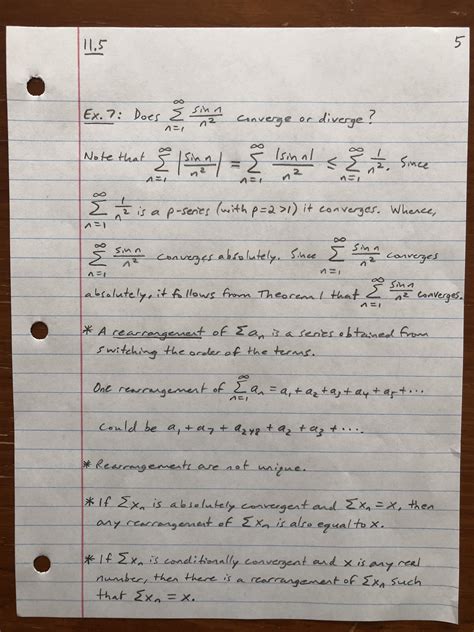 11.5 5
Ex. 7: Does ∞ Σ n=1 sin n / n² converge or diverge?
Note that ∞ Σ n=1 |sin n / n²| = ∞ Σ n=1 |sin n| / n² ≤ ∞ Σ n=1 1 / n². Since
∞ Σ n=1 1 / n² is a p-series (with p=2>1) it converges. Whence,
∞ Σ n=1 sin n / n² converges absolutely. Since ∞ Σ n=1 sin n / n² converges
absolutely, it follows from Theorem 1 that ∞ Σ n=1 sin n / n² converges.
* A rearrangement of Σ aₙ is a series obtained from
switching the order of the terms.
One rearrangement of ∞ Σ n=1 aₙ = a₁ + a₂ + a₃ + a₄ + a₅ + ···
could be a₁ + a₇ + a₂₄₈ + a₂ + a₃ + ···.
* Rearrangements are not unique.
* If Σ xₙ is absolutely convergent and Σ xₙ = x, then
any rearrangement of Σ xₙ is also equal to x.
* If Σ xₙ is conditionally convergent and x is any real
number, then there is a rearrangement of Σ xₙ such
that Σ xₙ = x.